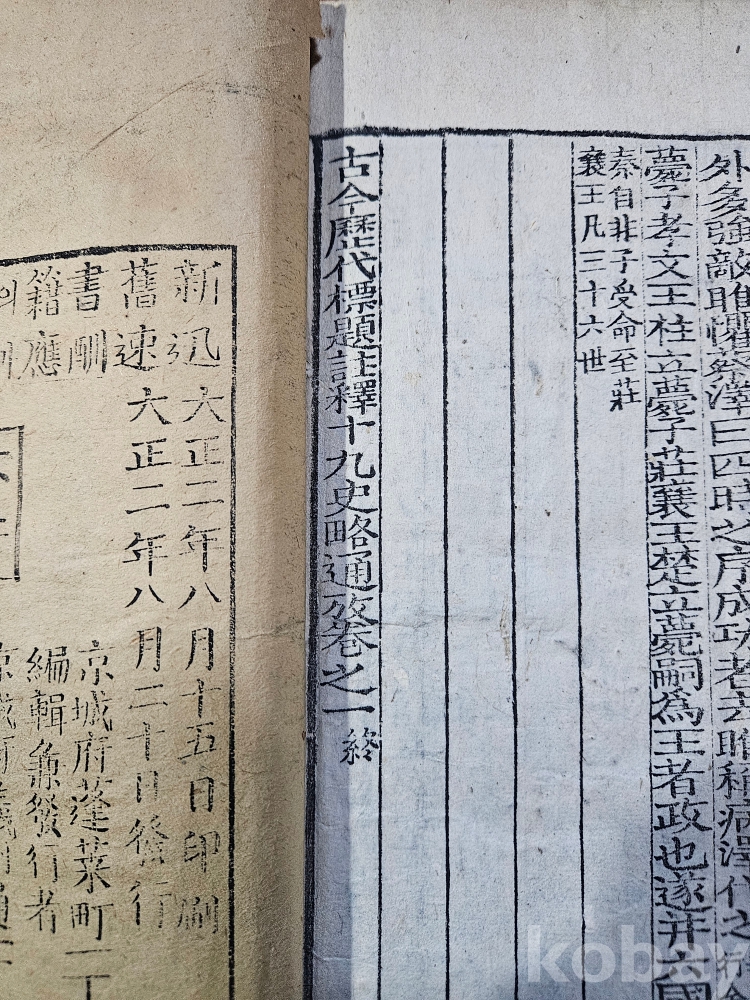 外多強敵睢懼蔡澤曰四時之序成功者去睢稱病澤代之
薨子孝文王柱立薨子莊襄王楚立薨嗣為王者政也遂并六國
秦自非子受命至莊
襄王凡三十六世
古今歷代標題註釋十九史略通攷卷之一 終
新舊書籍
迅速酬應
大正二年八月十五日印刷
大正二年八月二十日發行
京城府蓬萊町一丁
編輯兼發行者
kobay